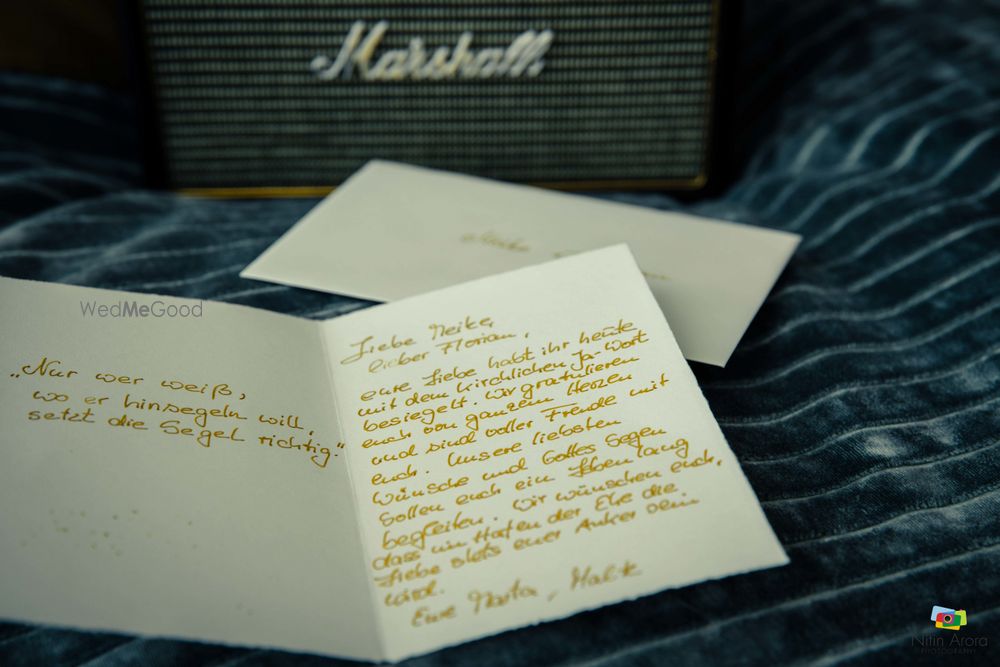 Marshall
WedMeGood
„Nur wer weiß,
wo er hinsegeln will,
setzt die Segel richtig."
Liebe Meike,
lieber Florian,
eure Liebe habt ihr heute
mit dem kirchlichen Ja-Wort
besiegelt. Wir gratulieren
euch von ganzem Herzen
und sind voller Freude mit
euch. Unsere liebsten
Wünsche und Gottes Segen
sollen euch ein Leben lang
begleiten. Wir wünschen euch,
dass im Hafen der Ehe die
Liebe stets euer Anker sein
wird.
Eure Marta, Malte
Nitin Arora
PHOTOGRAPHY